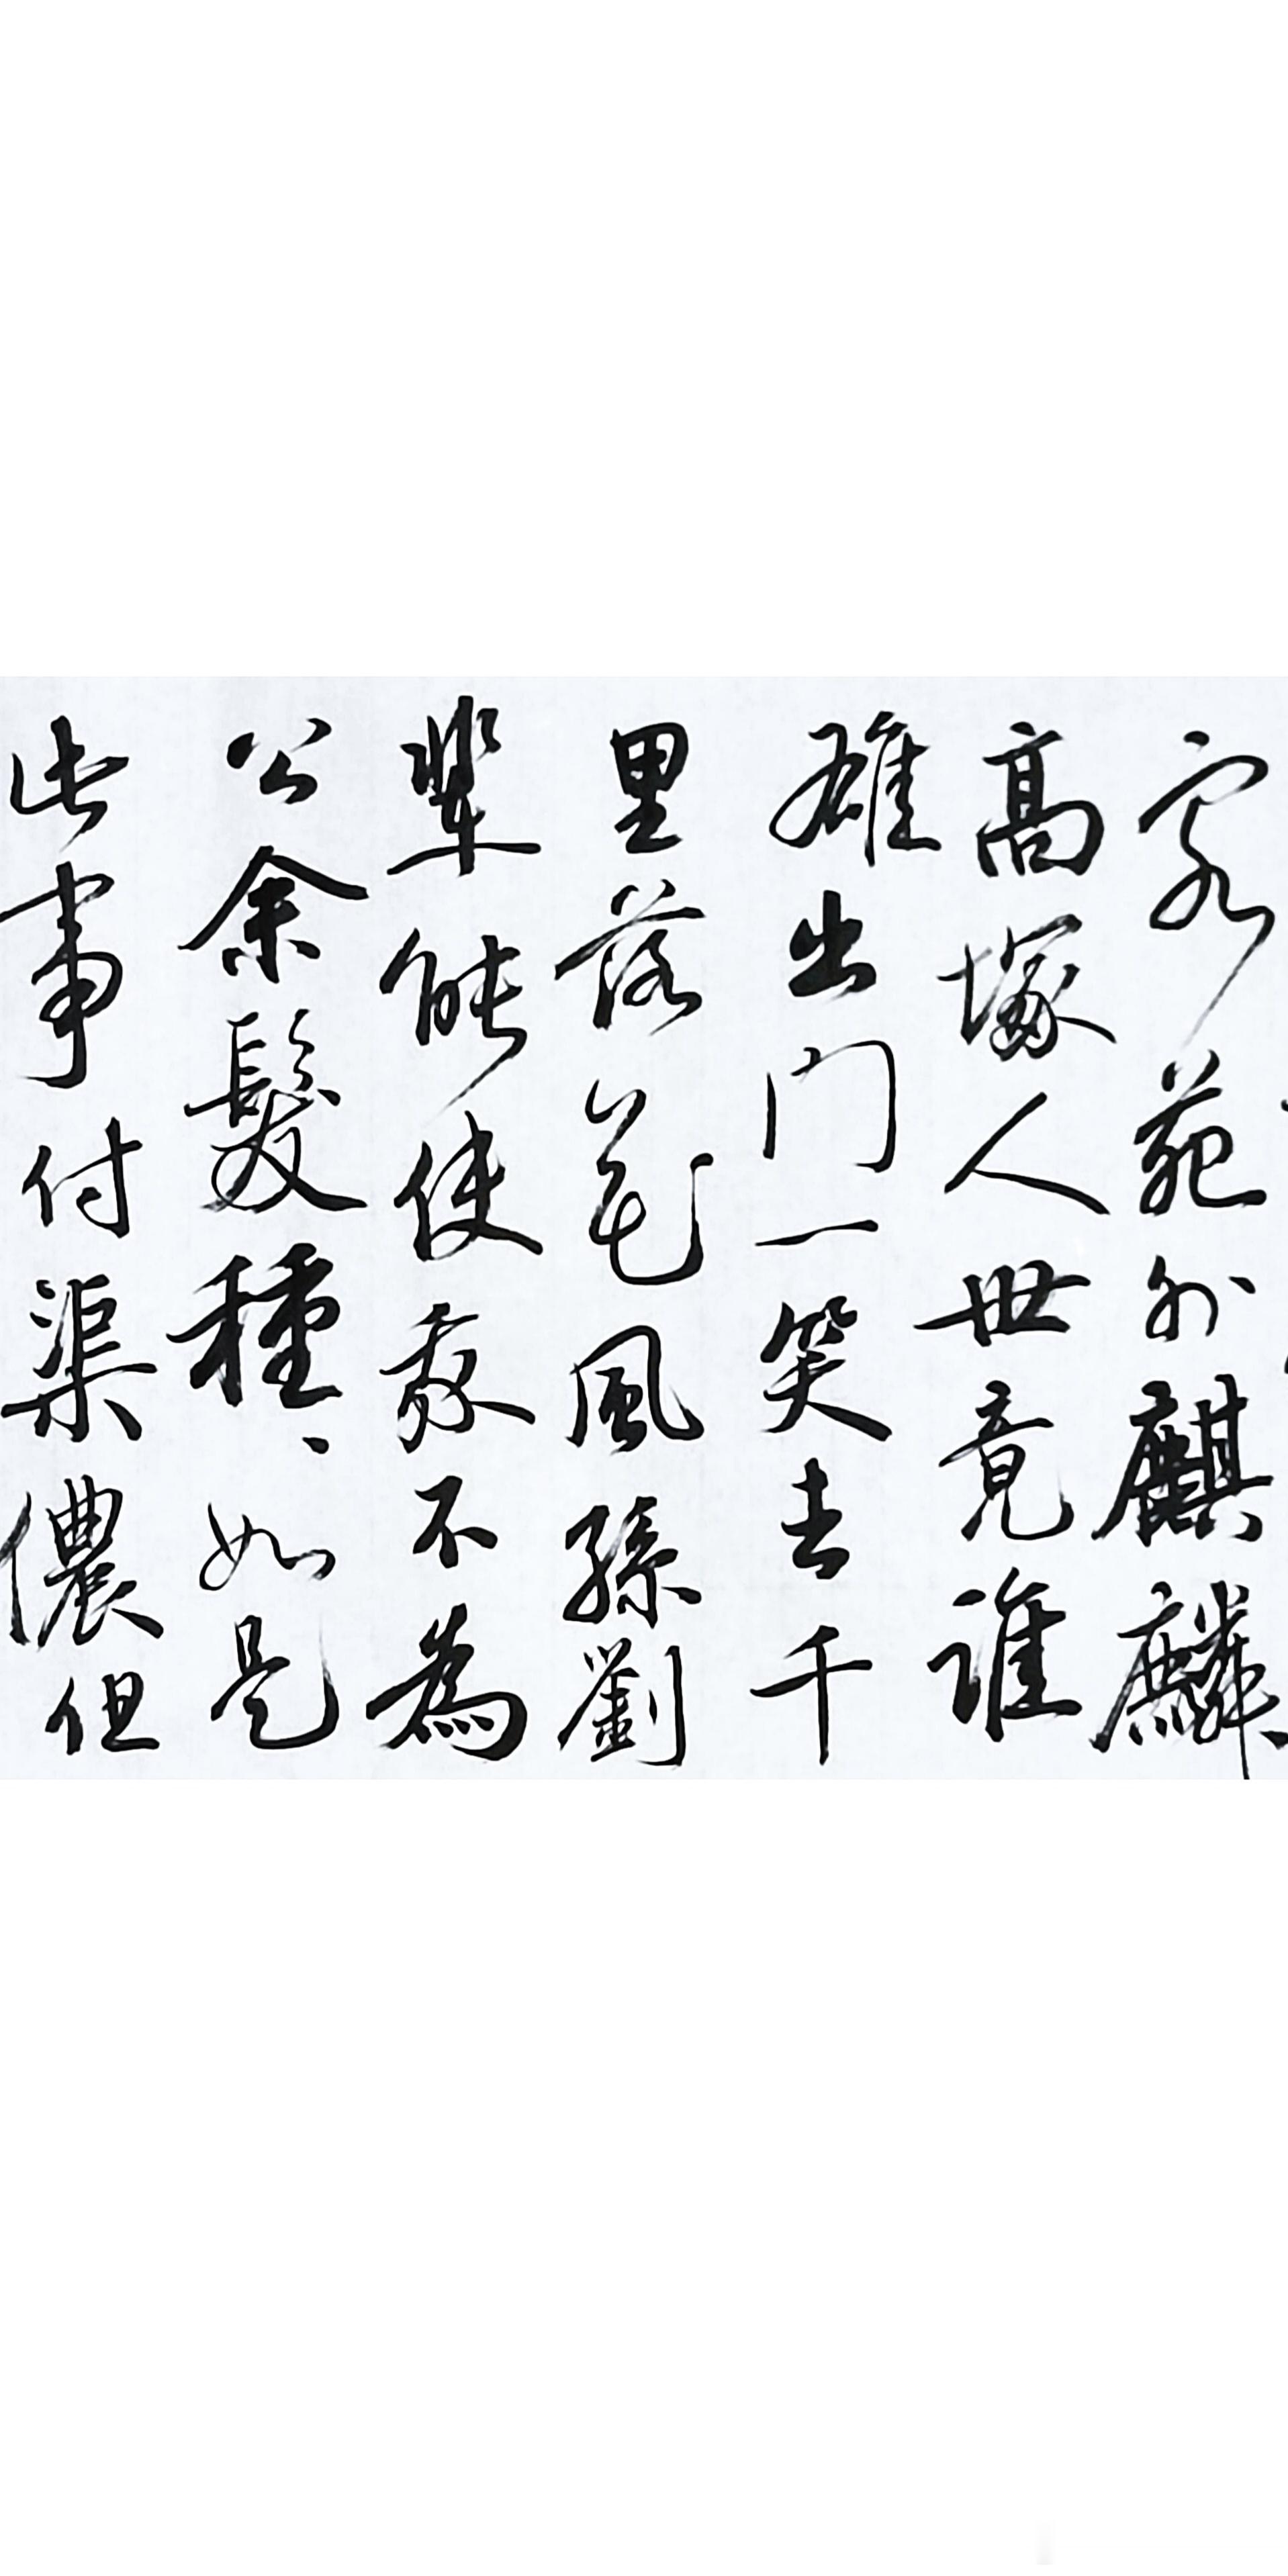 客苑外麒麟
高塚人世竟誰
雄出门一笑去千
里落花風孫劉
輩能使我不為
公余髮種、如是
此事付渠儂但